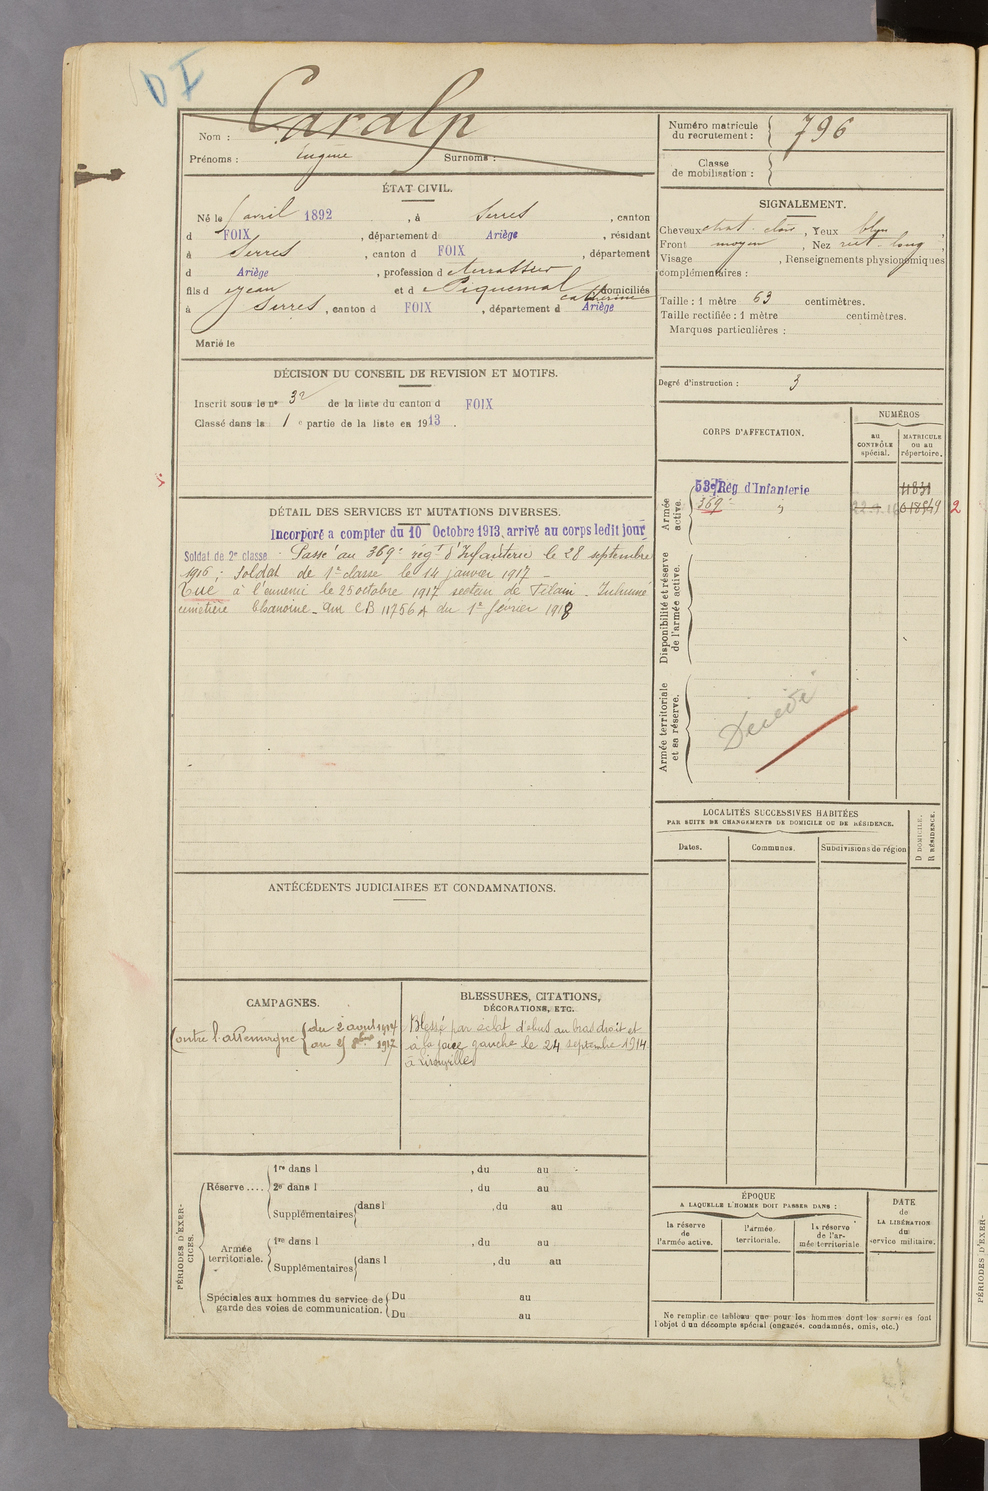 D I
Nom : Caralp
Prénoms : Eugène Surnoms :
Numéro matricule du recrutement : 796
Classe de mobilisation :
ÉTAT CIVIL.
Né le avril 1892, à Serres, canton
d FOIX, département d Ariège, résidant
à Serres, canton d FOIX, département
d Ariège, profession d terrassier
fils d Jean et d Piquemal Catherine domiciliés
à Serres, canton d FOIX, département d Ariège
Marié le
SIGNALEMENT.
Cheveux chat. clair, Yeux bleu
Front moyen, Nez rect. long
Visage , Renseignements physionomiques
complémentaires :
Taille : 1 mètre 63 centimètres.
Taille rectifiée : 1 mètre centimètres.
Marques particulières :
Degré d'instruction : 3
DÉCISION DU CONSEIL DE REVISION ET MOTIFS.
Inscrit sous le nº 32 de la liste du canton d FOIX
Classé dans la 1e partie de la liste en 1913.
CORPS D'AFFECTATION.
NUMÉROS
au CONTRÔLE spécial.
MATRICULE ou au répertoire.
Armée active.
53e Rég d'Infanterie
369e "
Disponibilité et réserve de l'armée active.
Armée territoriale et sa réserve.
Décédé
2
DÉTAIL DES SERVICES ET MUTATIONS DIVERSES.
Incorporé a compter du 10 Octobre 1913, arrivé au corps ledit jour
Soldat de 2e classe. Passé au 369e rég. d'Infanterie le 28 septembre
1916; Soldat de 1e classe le 14 janvier 1917 –
Tué à l'ennemi le 25 octobre 1917 secteur de Filain. Inhumé
cimetière Chanoine. Am CB 11756A du 1e février 1918
LOCALITÉS SUCCESSIVES HABITÉES
PAR SUITE DE CHANGEMENTS DE DOMICILE OU DE RÉSIDENCE.
Dates. Communes. Subdivisions de région
D DOMICILE. R RÉSIDENCE.
ANTÉCÉDENTS JUDICIAIRES ET CONDAMNATIONS.
CAMPAGNES.
Contre l'Allemagne du 2 août 1914
au 25 8bre 1917
BLESSURES, CITATIONS,
DÉCORATIONS, ETC.
Blessé par éclat d'obus au bras droit et
à la joue gauche le 24 septembre 1914
à
PÉRIODES D'EXERCICES.
Réserve....
1re dans l , du au
2e dans l , du au
Supplémentaires dans l , du au
Armée territoriale.
1re dans l , du au
Supplémentaires dans l , du au
Spéciales aux hommes du service de garde des voies de communication.
Du au
Du au
ÉPOQUE
A LAQUELLE L'HOMME DOIT PASSER DANS :
la réserve de l'armée active.
l'armée territoriale.
la réserve de l'armée territoriale
DATE de LA LIBÉRATION du service militaire.
Ne remplir ce tableau que pour les hommes dont les services font
l'objet d'un décompte spécial (engagés, condamnés, omis, etc.)
PÉRIODES D'EXER-